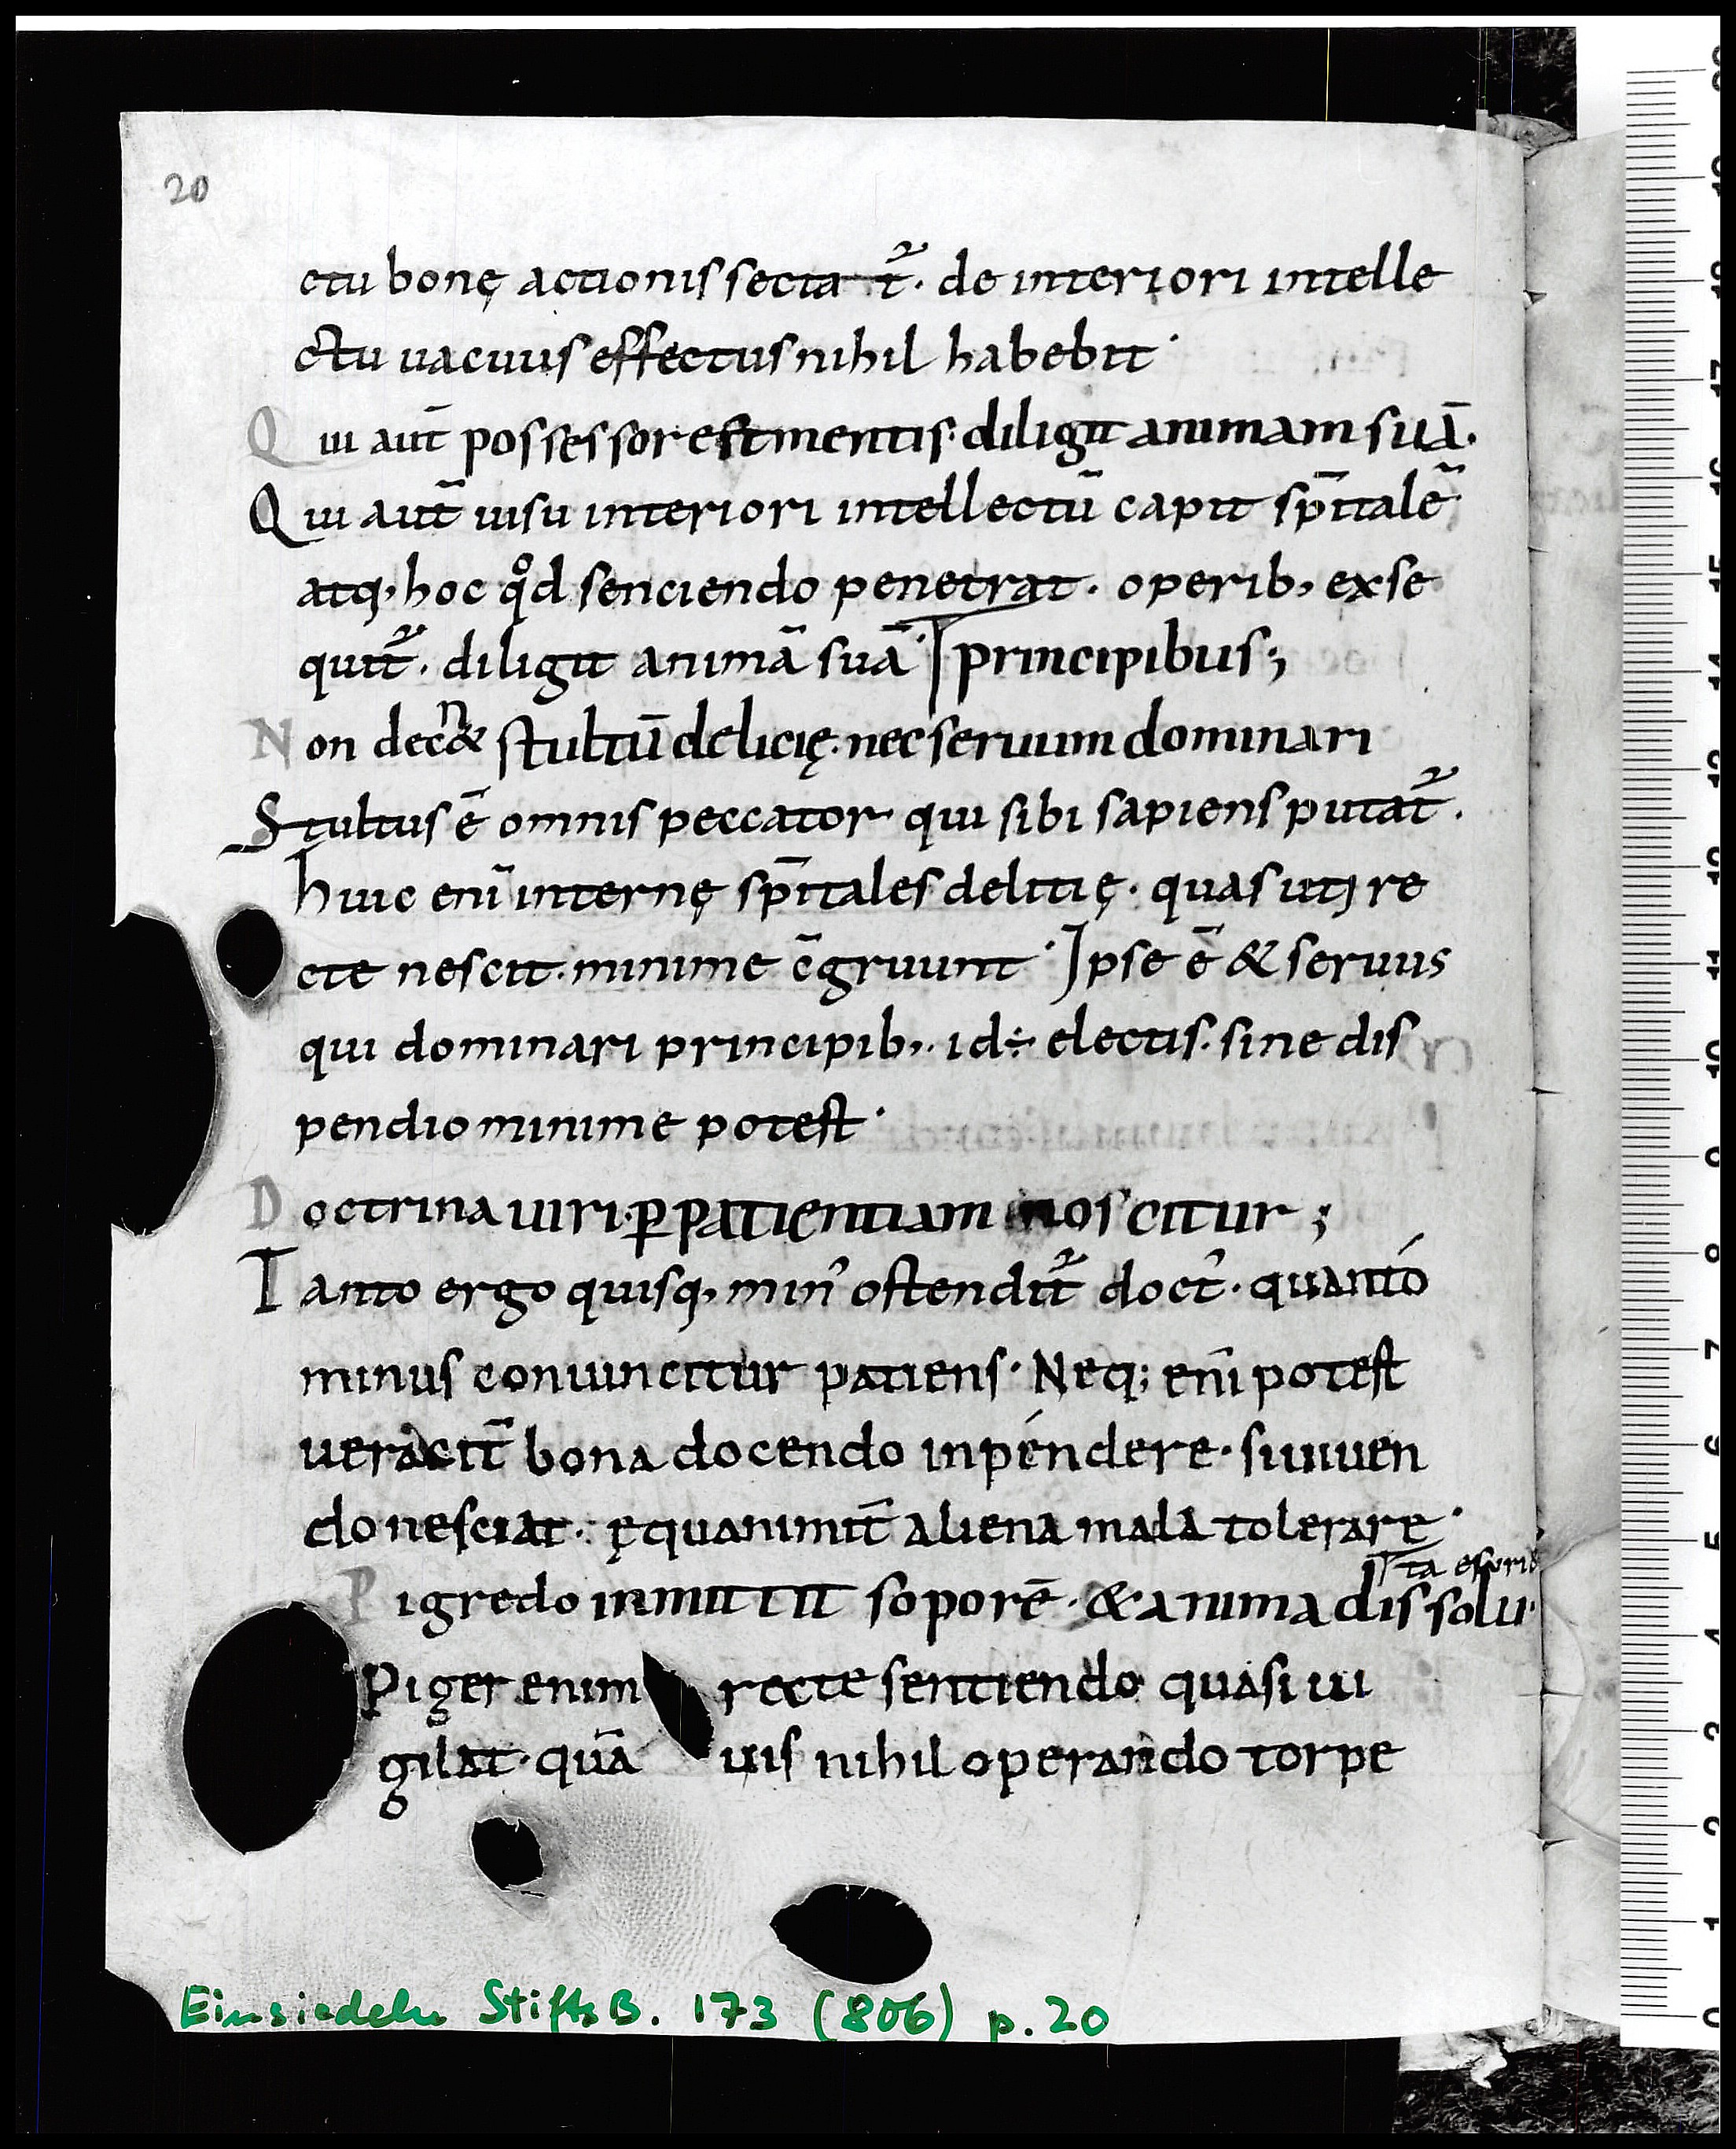 20
ctu bonę actionis sectat̄ᷣ. de interiori intelle
ctu uacuus effectus nihil habebit·
Qui aūt possessor est mentis. diligit animam suā.
Qui aūt uisu interiori intellectū capit sp̄italē
atq, hoc qͦd senciendo penetrat. operib, exse
quit̄ᷣ. diligit animā suā· principibus;
Non decn& stultū delicię. nec seruum dominari
Stultus ē omnis peccator qui sibi sapiens putat̄ᷣ.
huic enī internę sp̄itales delitię. quas uti re
cte nescit. minime c̄gruunt· Ipse ē & seruus
qui dominari principib,. id÷ electis. sine dis
pendio minime potest·
Doctrina uiri. ꝑ patientiam noscitur;
Tanto ergo quisq, min' ostendit̄ᷣ doct'. quantó
minus conuincitur patiens· Neq; enī potest
ueracit̄ bona docendo inpéndere. si uiuen
do nesciat. ęquanimit̄ aliena mala tolerare·
ta esuri&
Pigredo inmittit soporē. & anima dissolu·
Piger enim recte sentiendo quasi ui
gilat. quā uis nihil operando torpe
Einsiedeln StiftsB. 173 (806) p. 20
20
19
18
17
16
15
14
13
12
11
10
9
8
7
6
5
4
3
2
1
0